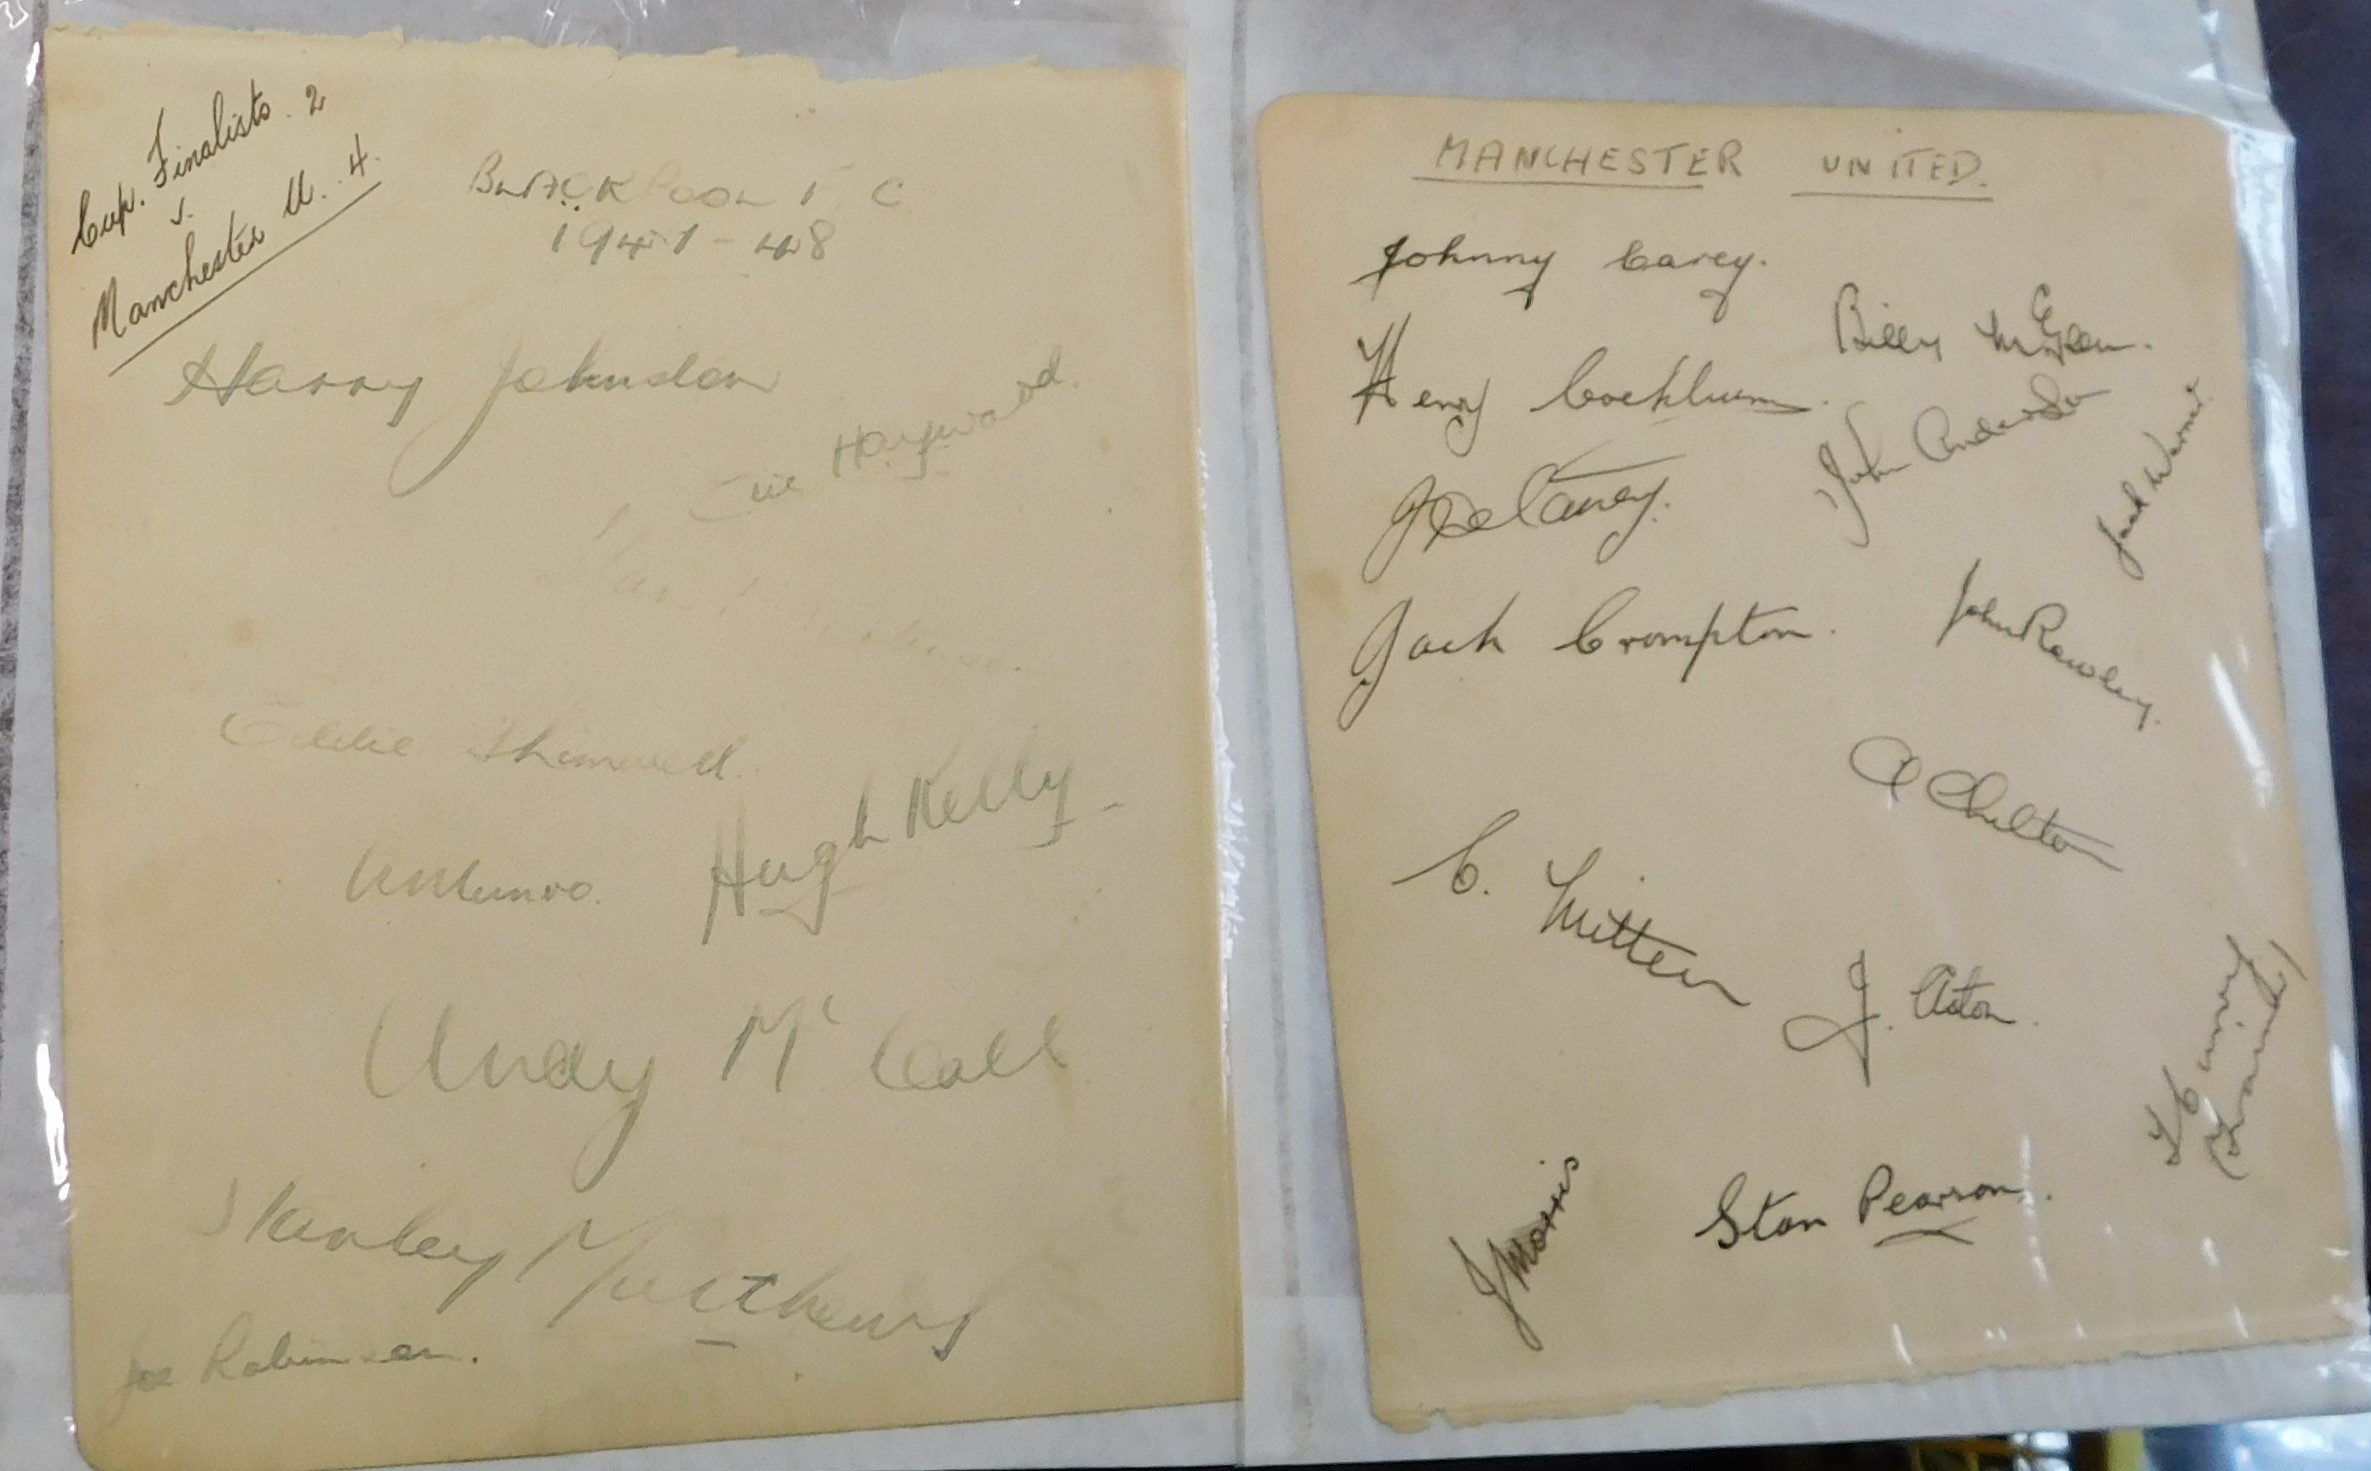 Cup. Finalists. 2
v.
Manchester U. 4.
BLACKPOOL F C
1947-48
Harry Johnston
Eric Hayward.
Stan
Eddie Shimwell.
A Munro.
Hugh Kelly
Andy Mc Call
Stanley Matthews
Joe Robinson.
MANCHESTER UNITED.
Johnny Carey.
Billy McGlen.
Henry Cockburn.
John Anderson
Jack Warner.
J Delaney.
Jack Crompton.
John Rowley.
A Chilton
C. Mitten
J. Aston.
T Curry
(Trainer)
J Morris
Stan Pearson.